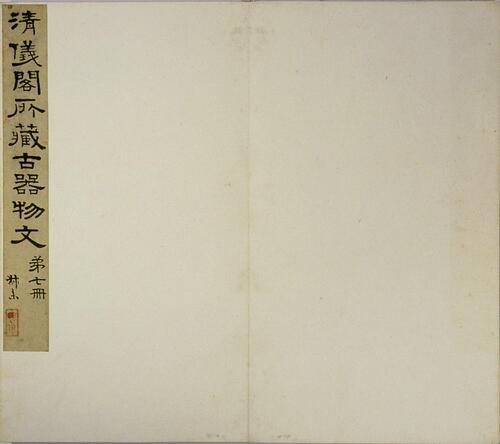 清儀閣所藏古器物文
弟七冊
叔未